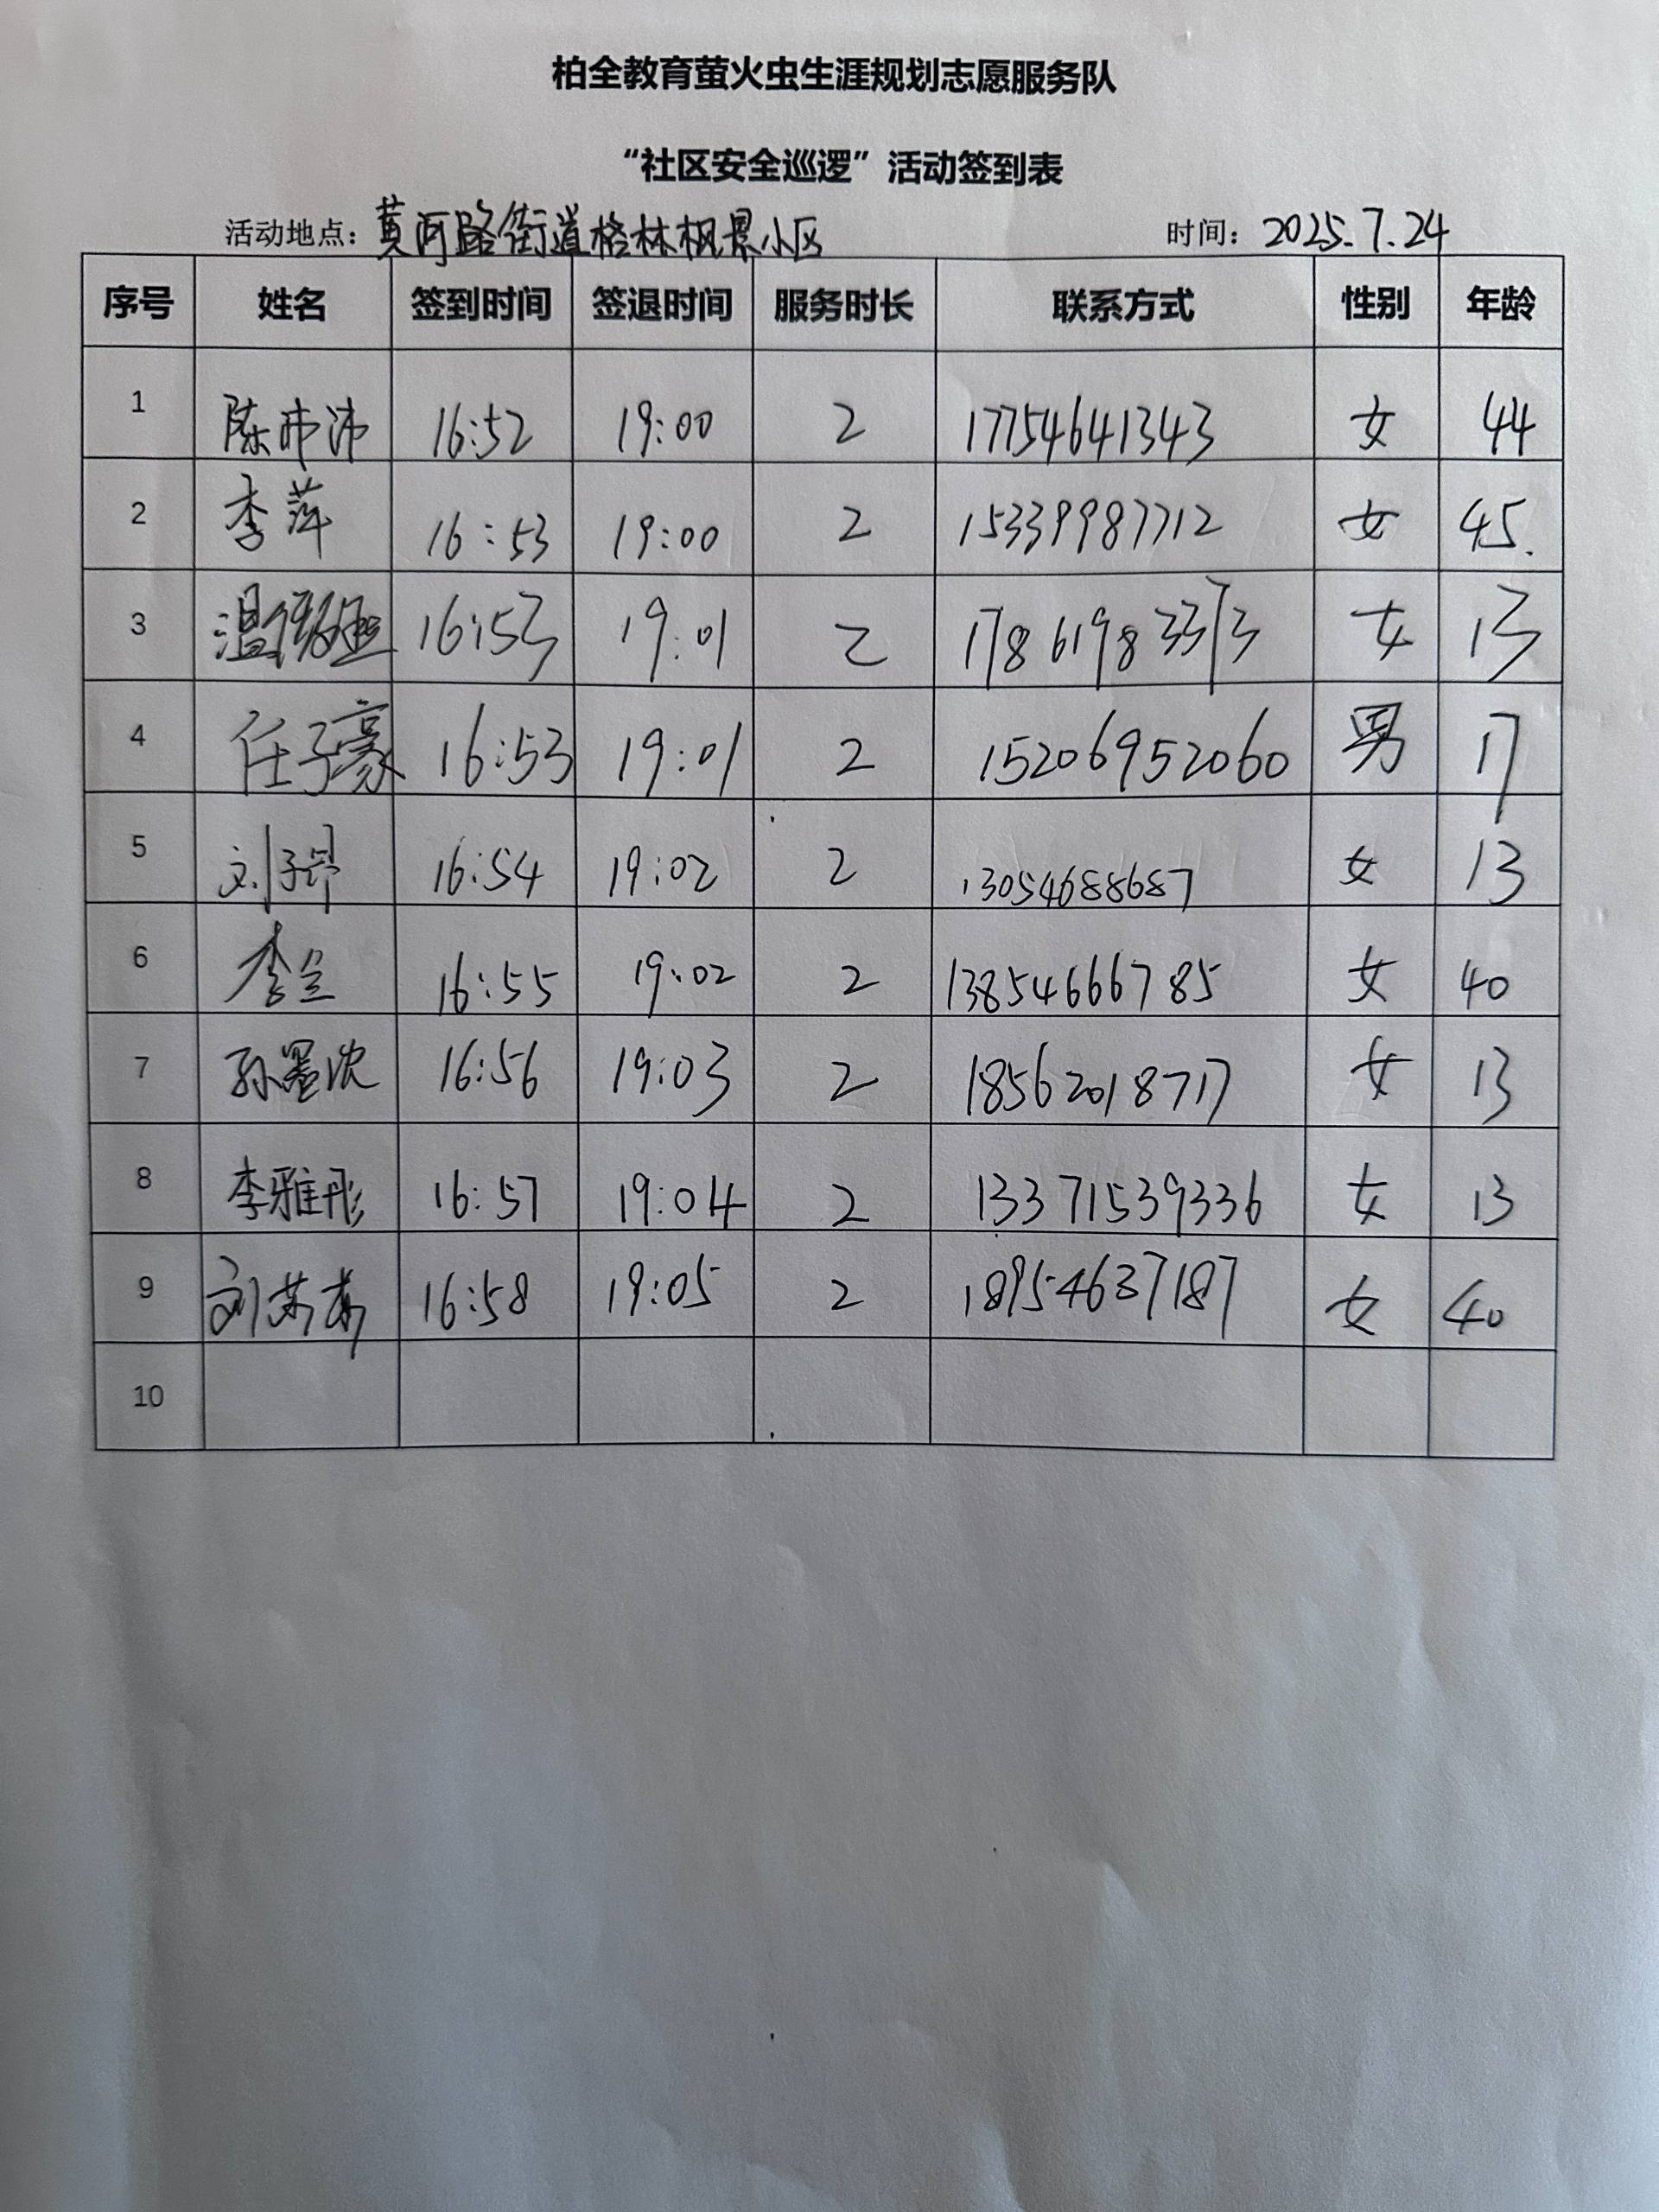 柏全教育萤火虫生涯规划志愿服务队
“社区安全巡逻”活动签到表
活动地点：黄河路街道格林枫景小区 时间：2025.7.24
序号 姓名 签到时间 签退时间 服务时长 联系方式 性别 年龄
1 陈沛沛 16:52 19:00 2 17754641343 女 44
2 李萍 16:53 19:00 2 15339987712 女 45.
3 温 16:53 19:01 2 17861983373 女 13
4 任子豪 16:53 19:01 2 15206952060 男 17
5 刘子昂 16:54 19:02 2 13054688687 女 13
6 李 16:55 19:02 2 13854666785 女 40
7 孙墨 16:56 19:03 2 18562018717 女 13
8 李雅彤 16:57 19:04 2 13371539336 女 13
9 刘 16:58 19:05 2 18954637187 女 40
10